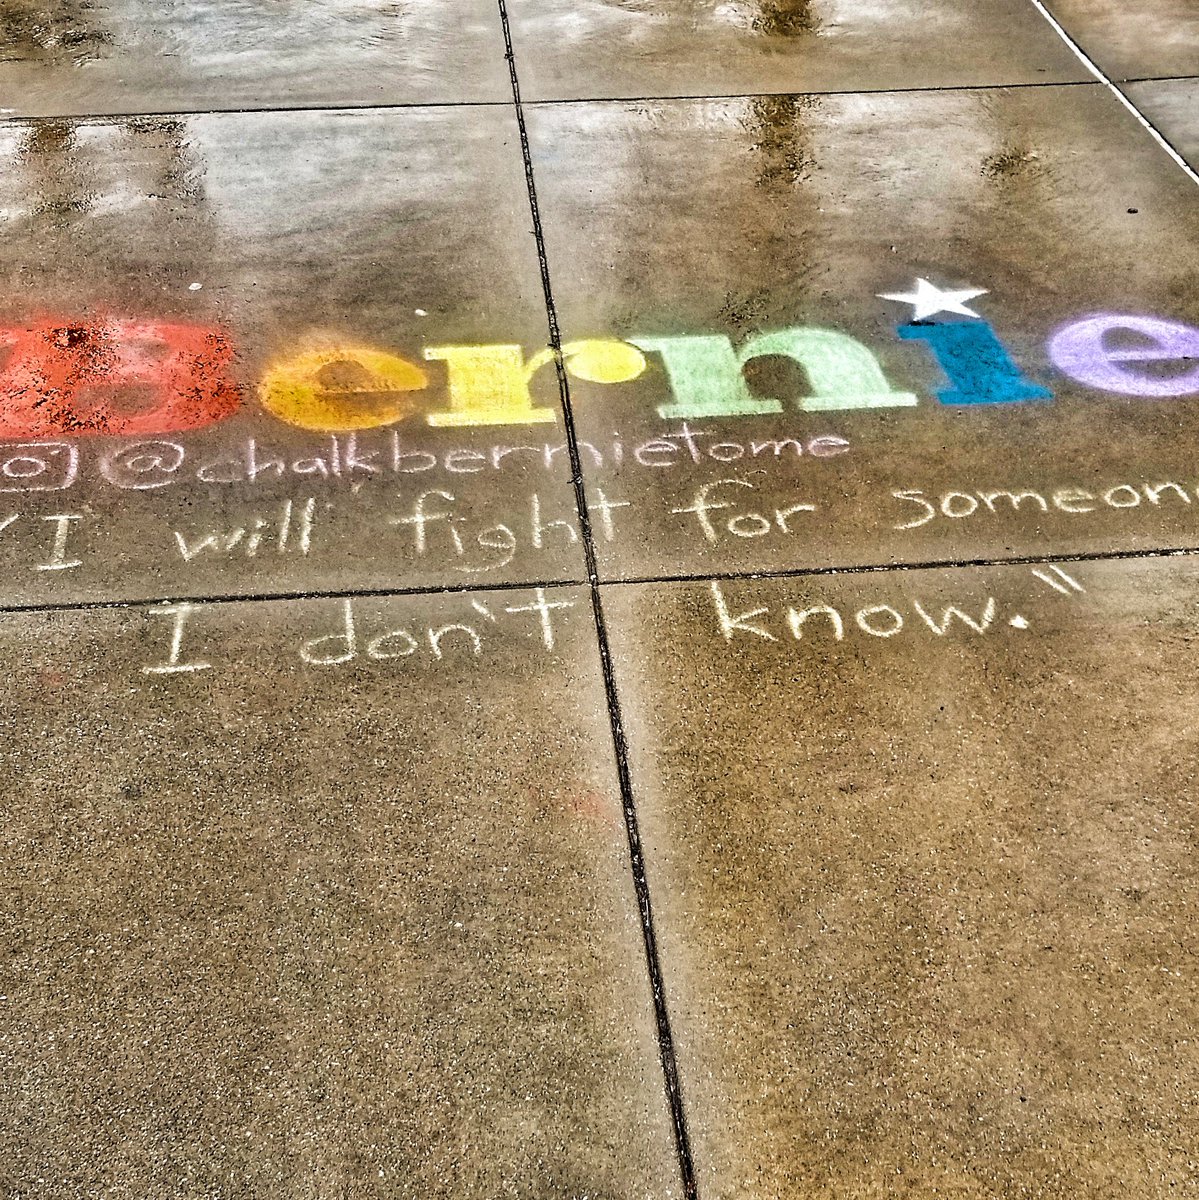 Bernie
@chalkbernietome
"I will fight for someone
I don't know."